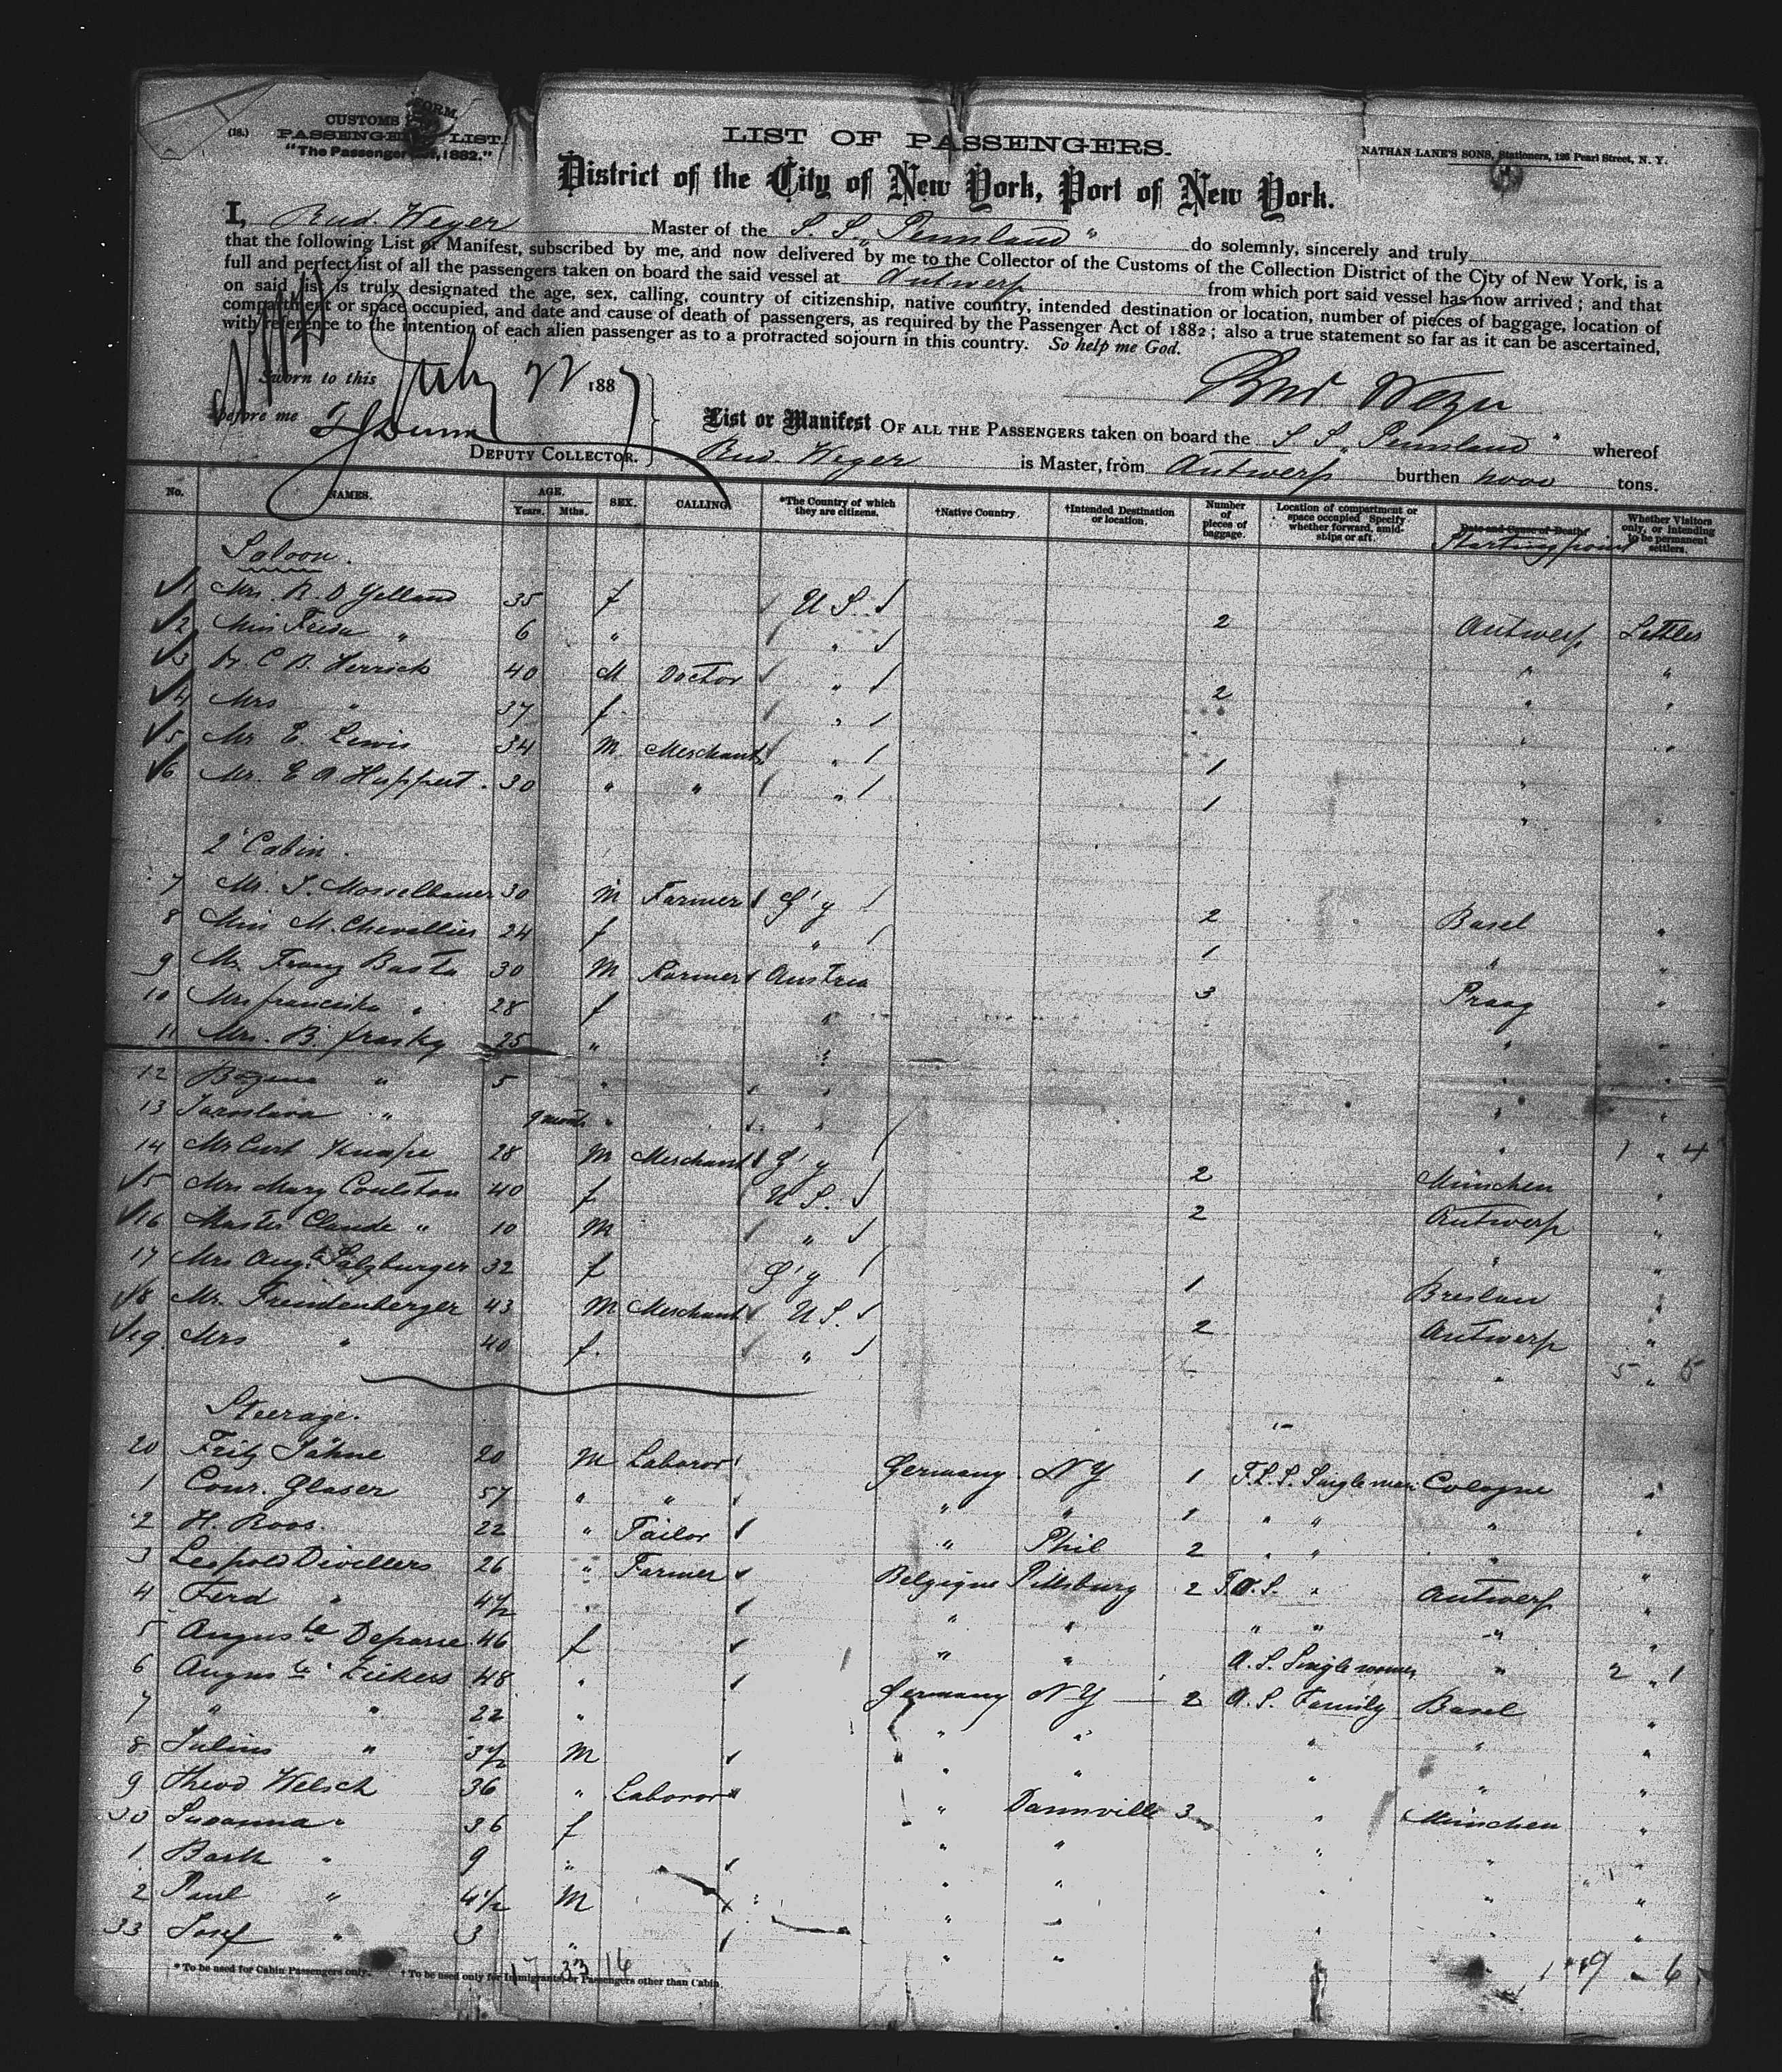 (18.)
CUSTOMS FORM.
PASSENGER LIST.
"The Passenger Act, 1882."
LIST OF PASSENGERS.
NATHAN LANE'S SONS, Stationers, 128 Pearl Street, N. Y.
District of the City of New York, Port of New York.
I, Rud. Weyer Master of the S. S. "Pennland" do solemnly, sincerely and truly
that the following List or Manifest, subscribed by me, and now delivered by me to the Collector of the Customs of the Collection District of the City of New York, is a
full and perfect list of all the passengers taken on board the said vessel at Antwerp from which port said vessel has now arrived; and that
on said list is truly designated the age, sex, calling, country of citizenship, native country, intended destination or location, number of pieces of baggage, location of
compartment or space occupied, and date and cause of death of passengers, as required by the Passenger Act of 1882; also a true statement so far as it can be ascertained,
with reference to the intention of each alien passenger as to a protracted sojourn in this country. So help me God.
Sworn to this July 22 1887
Rud Weyer
before me
DEPUTY COLLECTOR.
List or Manifest OF ALL THE PASSENGERS taken on board the S. S. "Pennland" whereof
Rud. Weyer is Master, from Antwerp burthen tons.
No. NAMES. AGE. Years. Mths. SEX. CALLING. *The Country of which they are citizens. †Native Country. †Intended Destination or location. Number of pieces of baggage. Location of compartment or space occupied. Specify whether forward, amidships or aft. Date and Cause of Death. Starting point Whether Visitors only, or intending to be permanent settlers.
Saloon.
1 Mrs. R. D Yelland 35 f U S. 2 Antwerp Settler
2 Miss " 6 " " " "
3 Dr. C B. Herrick 40 M Doctor " 2 " "
4 Mrs " 37 f " " "
5 Mr E. Lewis 34 M Merchant " 1 "
6 Mr. E A. Huppert. 30 " " " 1 " "
2' Cabin.
7 Mr. S. Mosselbauer 30 M Farmer G'y 2 Basel "
8 Miss M. Chevallier 24 f " 1 " "
9 Mr. Franz Basta 30 M Farmer Austria 3 Praag "
10 Mrs Franciska " 28 f " " "
11 Mrs. B. 25 " " " "
12 " 5 " " "
13 Jaroslava " 9 month " " " 1 " 4
14 Mr Curt 28 M Merchant G'y 2 München "
15 Mrs Mary Coulston 40 f U S. 2 Antwerp "
16 Master Claude " 10 M " " "
17 Mrs Aug.ta Salzburger 32 f G'y 1 Breslau "
18 Mr. Freudenberger 43 M Merchant U S. 2 Antwerp "
19 Mrs " 40 f. " " 5 " 5
Steerage.
20 Fritz Jähne 20 M Laboror Germany NY 1 F.L.S. Single men Cologne "
1 Conr. Glaser 57 " " " " 1 " " " "
2 H. Roos. 22 " Tailor " Phil 2 " " " "
3 Leopold Divillers 26 " Farmer Belgique Pittsburg 2 " Antwerp "
4 Ferd " 4½ " " " " " " "
5 Auguste 46 f " " A. S. Single women " 2 " 1
6 Auguste 48 " Germany NY 2 A. S. Family Basel "
7 " " 22 " " " " " "
8 Julius " 3½ M " " " " "
9 Theod Welsch 36 " Laboror " Dannville 3 " München "
30 Susanna " 36 f " " " "
1 " 9 " " " " "
2 Paul " 4½ M " " " "
33 Josef " 3 " " " "
* To be used for Cabin Passengers only. † To be used only for Immigrants, or Passengers other than Cabin.
17 33 16
19 " 6